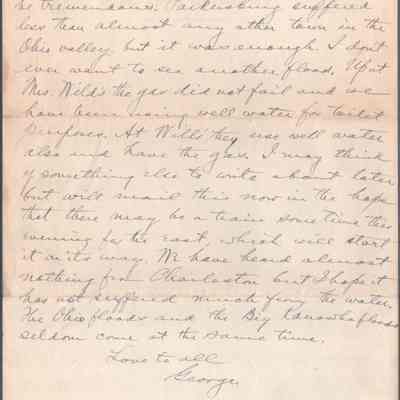 be tremendous. Parkersburg suffered
less than almost any other town in the
Ohio valley but it was enough. I dont
ever want to see another flood. Up at
Mrs. Wild's the gas did not fail and we
have been using well water for toilet
purposes. At Wills' they use well water
also and have the gas. I may think
of something else to write about later
but will mail this now in the hope
that there may be a train sometime this
evening for the east, which will start
it on its way. We have heard almost
nothing from Charleston but I hope it
has not suffered much from the water.
The Ohio floods and the Big Kanawha floods
seldom come at the same time.
Love to all
George.